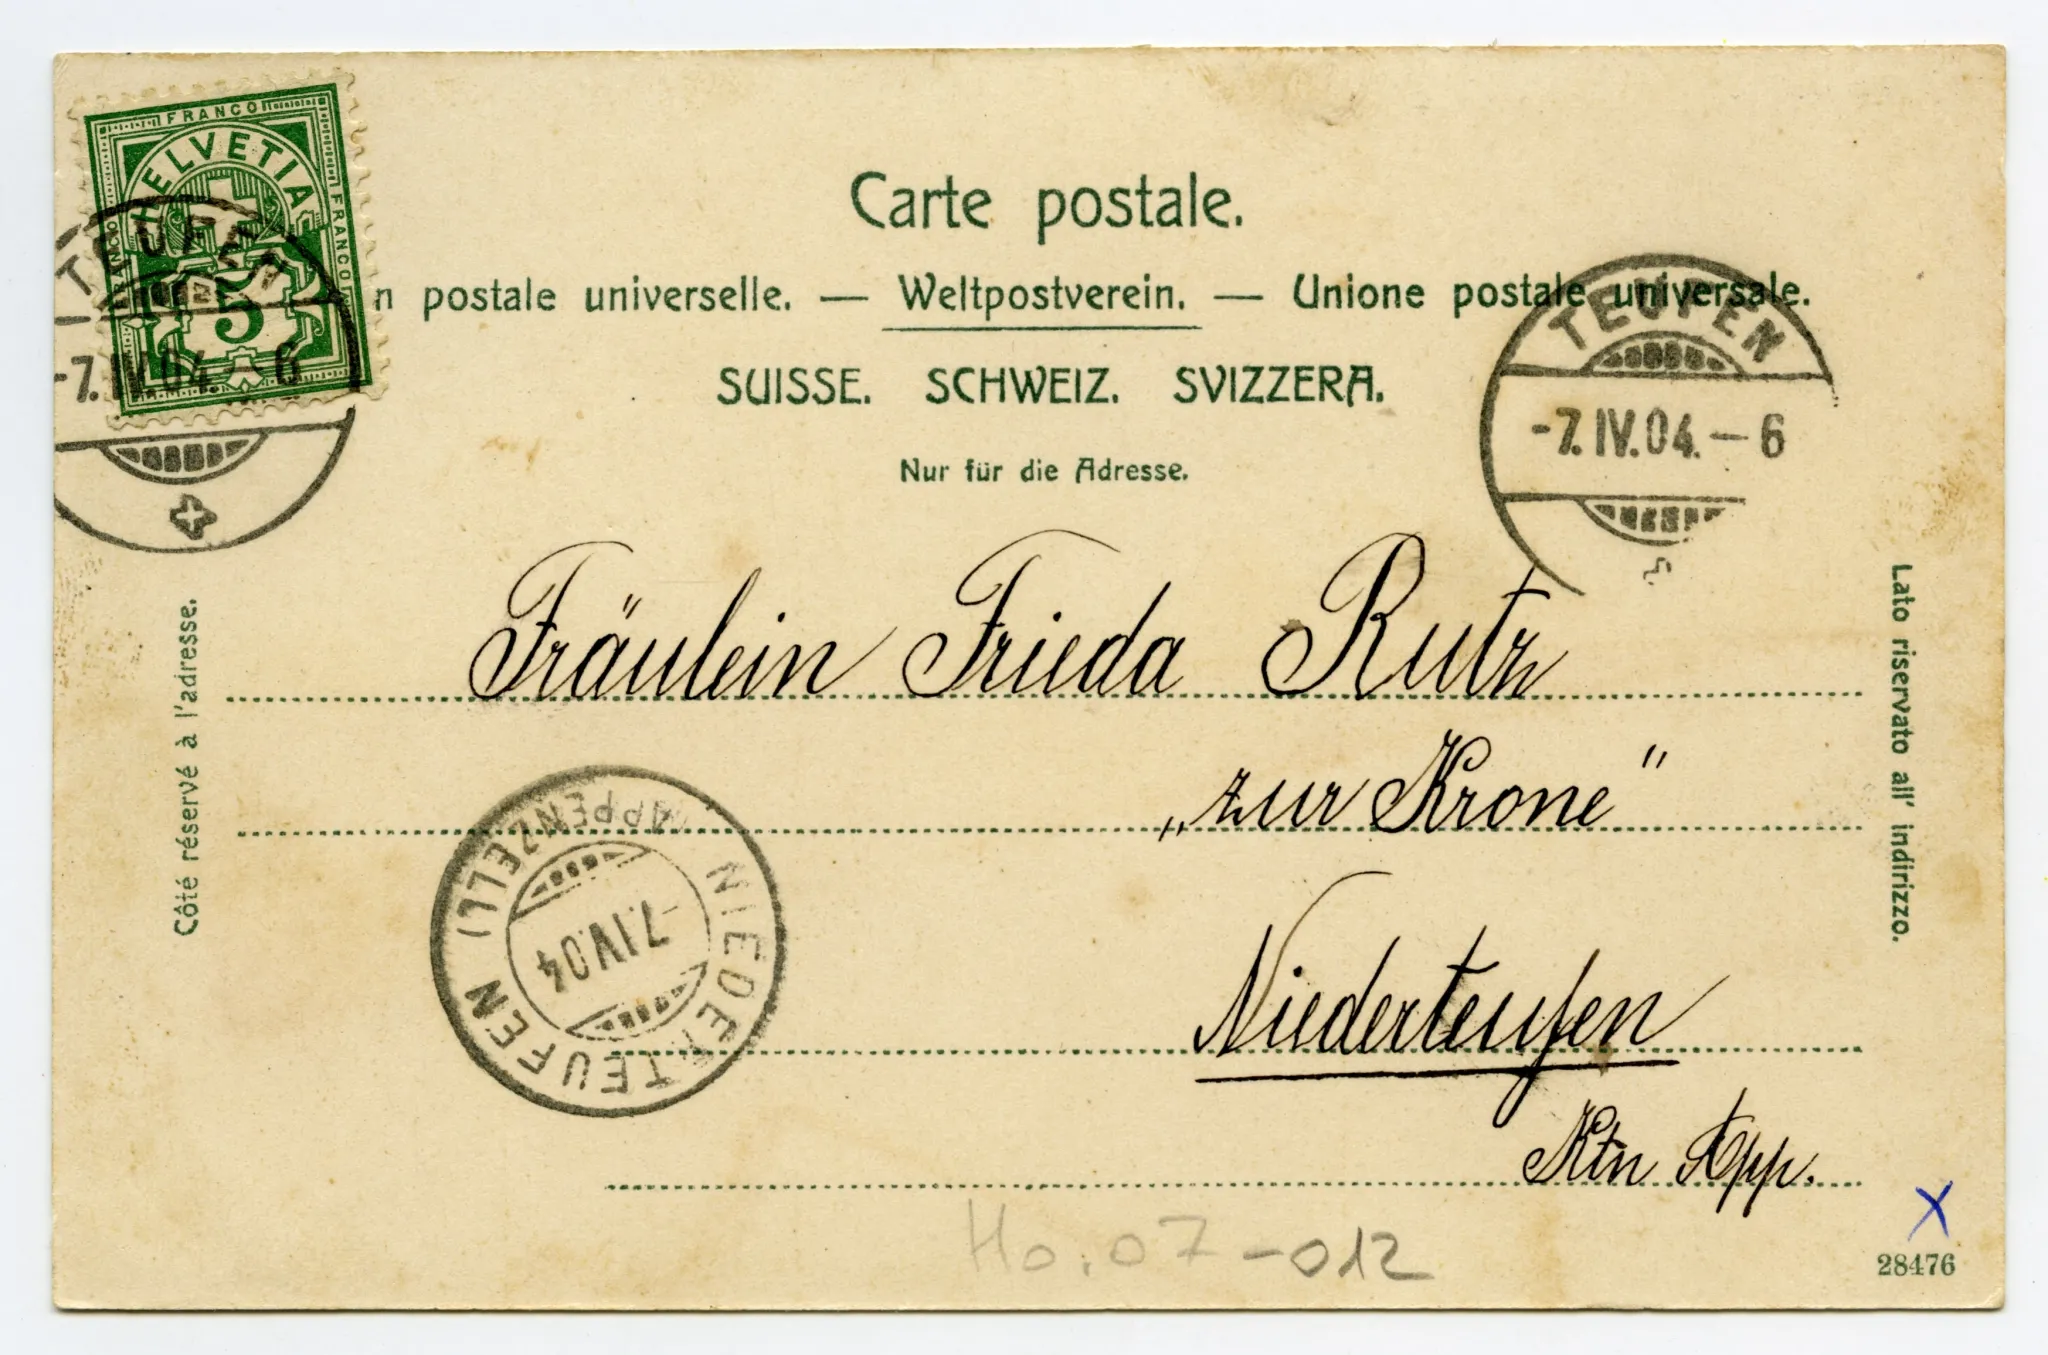 FRANCO
HELVETIA
FRANCO
FRANCO
5
TEUFEN
-7.IV.04.-6
Carte postale.
n postale universelle. — Weltpostverein. — Unione postale universale.
SUISSE. SCHWEIZ. SVIZZERA.
Nur für die Adresse.
TEUFEN
-7.IV.04.-6
Côté réservé à l'adresse.
Lato riservato all' indirizzo.
Fräulein Frieda Rutz
„zur Krone"
NIEDERTEUFEN
(APPENZELL)
-7.IV.04
Niederteufen
Ktn App.
Ho.07-012
X
28476